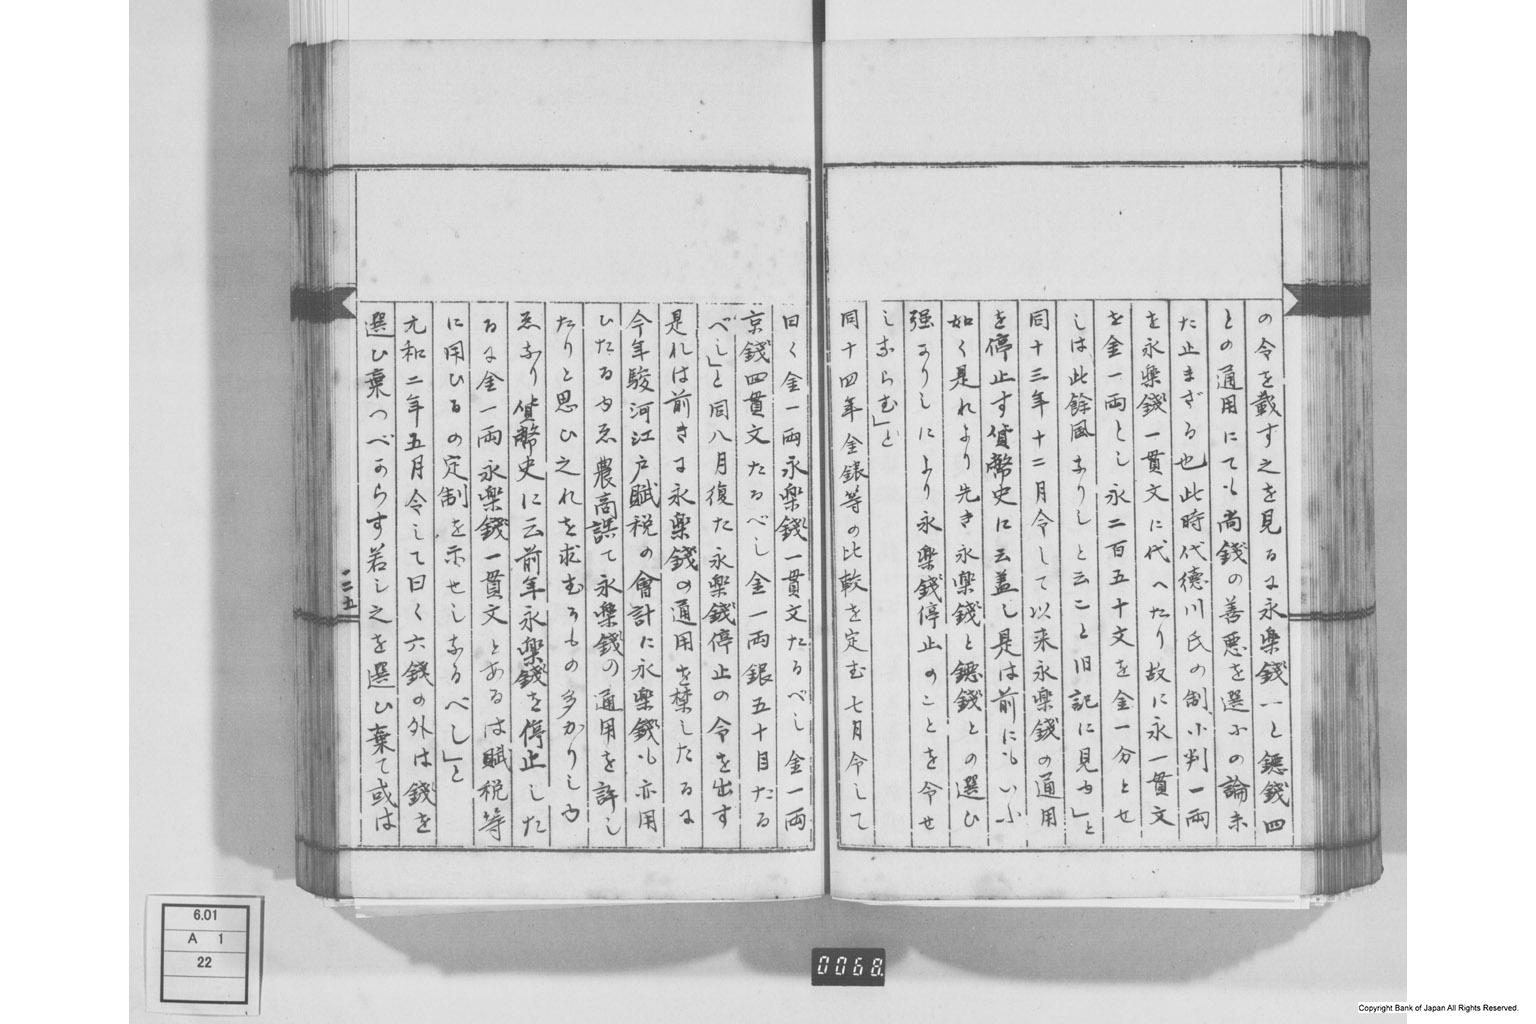 の令を載す之を見るに永楽錢一と鐚錢四
との通用にても尚錢の善悪を選ふの論未
た止まざる也此時代德川氏の制小判一兩
を永楽錢一貫文に代へたり故に永一貫文
を金一兩とし永二百五十文を金一分とせ
しは此餘風なりしと云こと旧記に見ゆ」と
同十三年十二月令して以来永楽錢の通用
を停止す貨幣史に云蓋し是は前にもいふ
如く是れより先き永楽錢と鐚錢との選ひ
强かりしにより永楽錢停止のことを令せ
しならむ」と
同十四年金銀等の比較を定む七月令して
曰く金一兩永楽錢一貫文たるべし金一兩
京錢四貫文たるべし金一兩銀五十目たる
べし」と同八月復た永楽錢停止の令を出す
是れは前きに永楽錢の通用を禁したるに
今年駿河江戸賦税の會計に永楽錢も亦用
ひたるゆゑ農商誤て永楽錢の通用を許し
たりと思ひ之れを求むるもの多かりしゆ
ゑなり貨幣史に云前年永楽錢を停止した
るに金一兩永楽錢一貫文とあるは賦税等
に用ひるの定制を示せしなるべし」と
元和二年五月令して曰く六錢の外は錢を
選ひ棄つべからす若し之を選ひ棄て或は
一二五
6.01
A 1
22
0068
Copyright Bank of Japan All Rights Reserved.